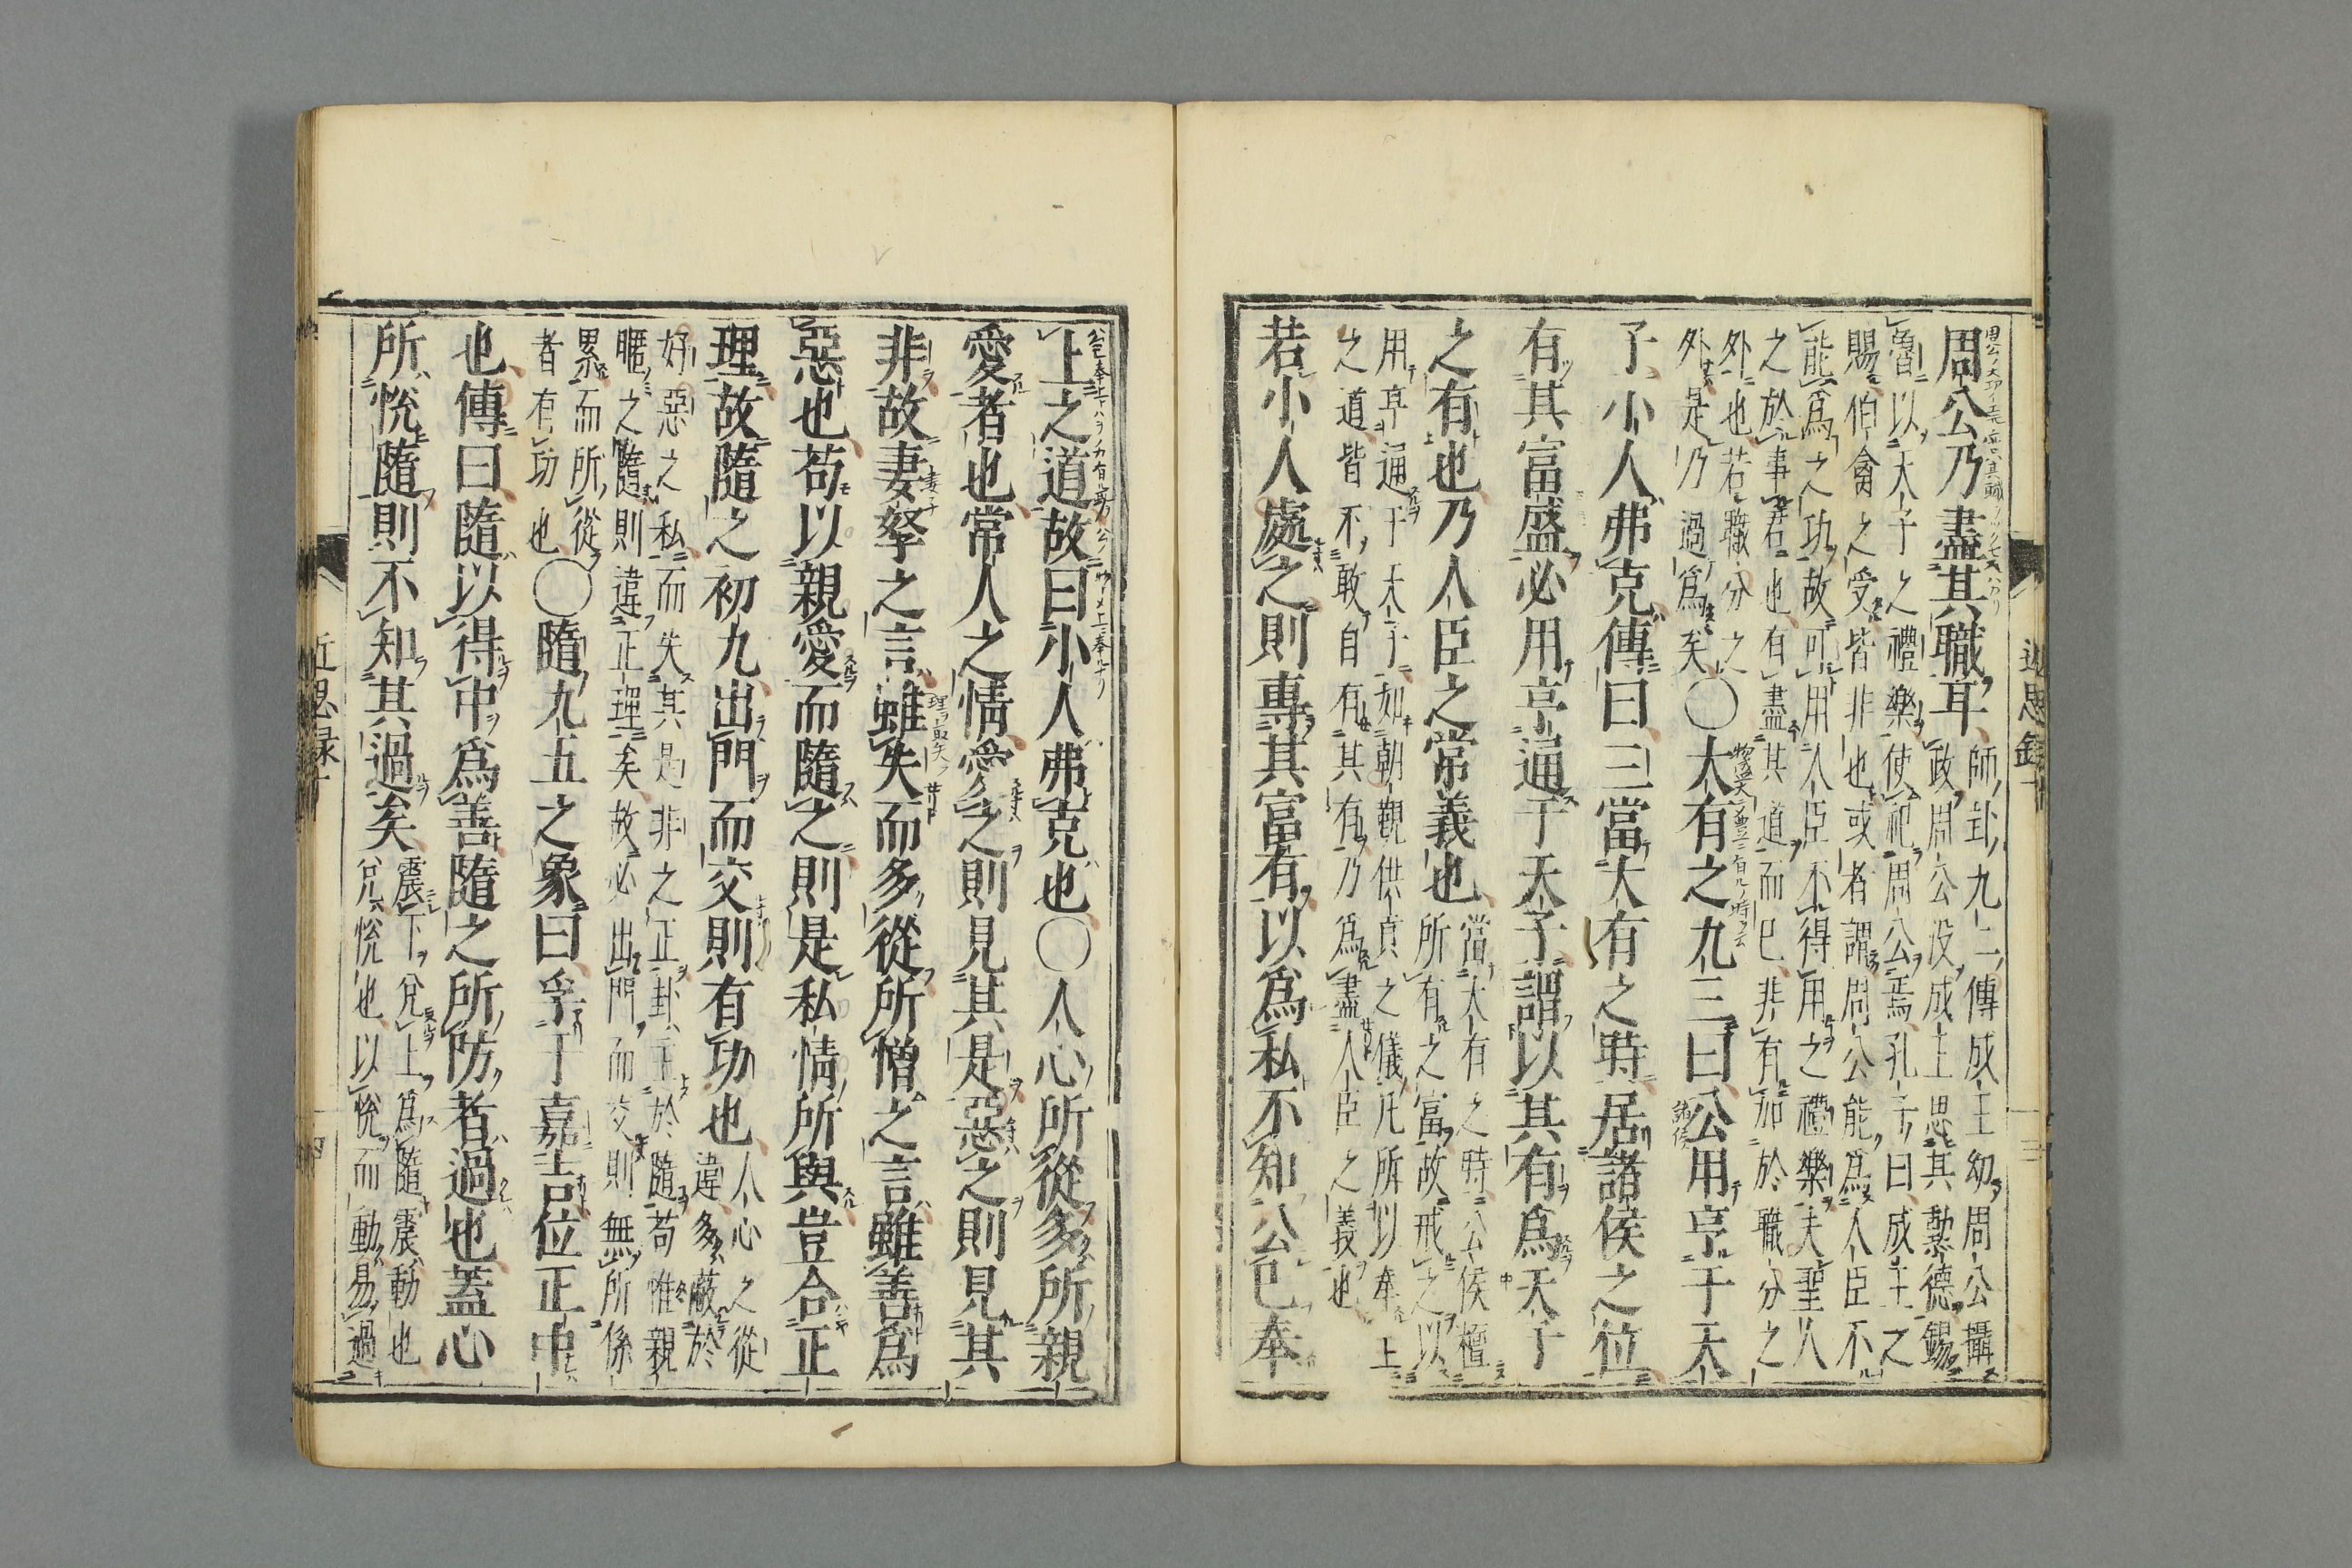 周公乃盡其職耳
師卦九二傳成王幼周公攝
政周公没成王思其勲德錫
魯以天子之禮樂使祀周公焉孔子曰成王之
賜伯禽之受皆非也或者謂周公能爲人臣不
能爲之功故可用人臣不得用之禮樂夫聖人
之於事君也有盡其道而已非有加於職分之
外也若職分之
外是乃過爲矣
〇大有之九三曰公用亨于天
子小人弗克傳曰三當大有之時居諸侯之位
有其富盛必用亨通于天子謂以其有爲天子
之有也乃人臣之常義也
當大有之時公侯擅
所有之富故戒之以
用亨通于天子如朝覲供貢之儀凡所以奉上
之道皆不敢自有其有乃爲盡人臣之義也
若小人處之則專其富有以爲私不知公已奉
上之道故曰小人弗克也〇人心所從多所親
愛者也常人之情愛之則見其是惡之則見其
非故妻孥之言雖失而多從所憎之言雖善爲
惡也苟以親愛而隨之則是私情所與豈合正
理故隨之初九出門而交則有功也
人心之從
違多蔽於
好惡之私而失其是非之正卦主於隨苟惟親
暱之隨則違正理矣故必出門而交則無所係
累而所從
者有功也
〇隨九五之象曰孚于嘉吉位正中
也傳曰隨以得中爲善隨之所防者過也蓋心
所悅隨則不知其過矣
震下兌上爲隨震動也
兌悅也以悅而動易過
近思録